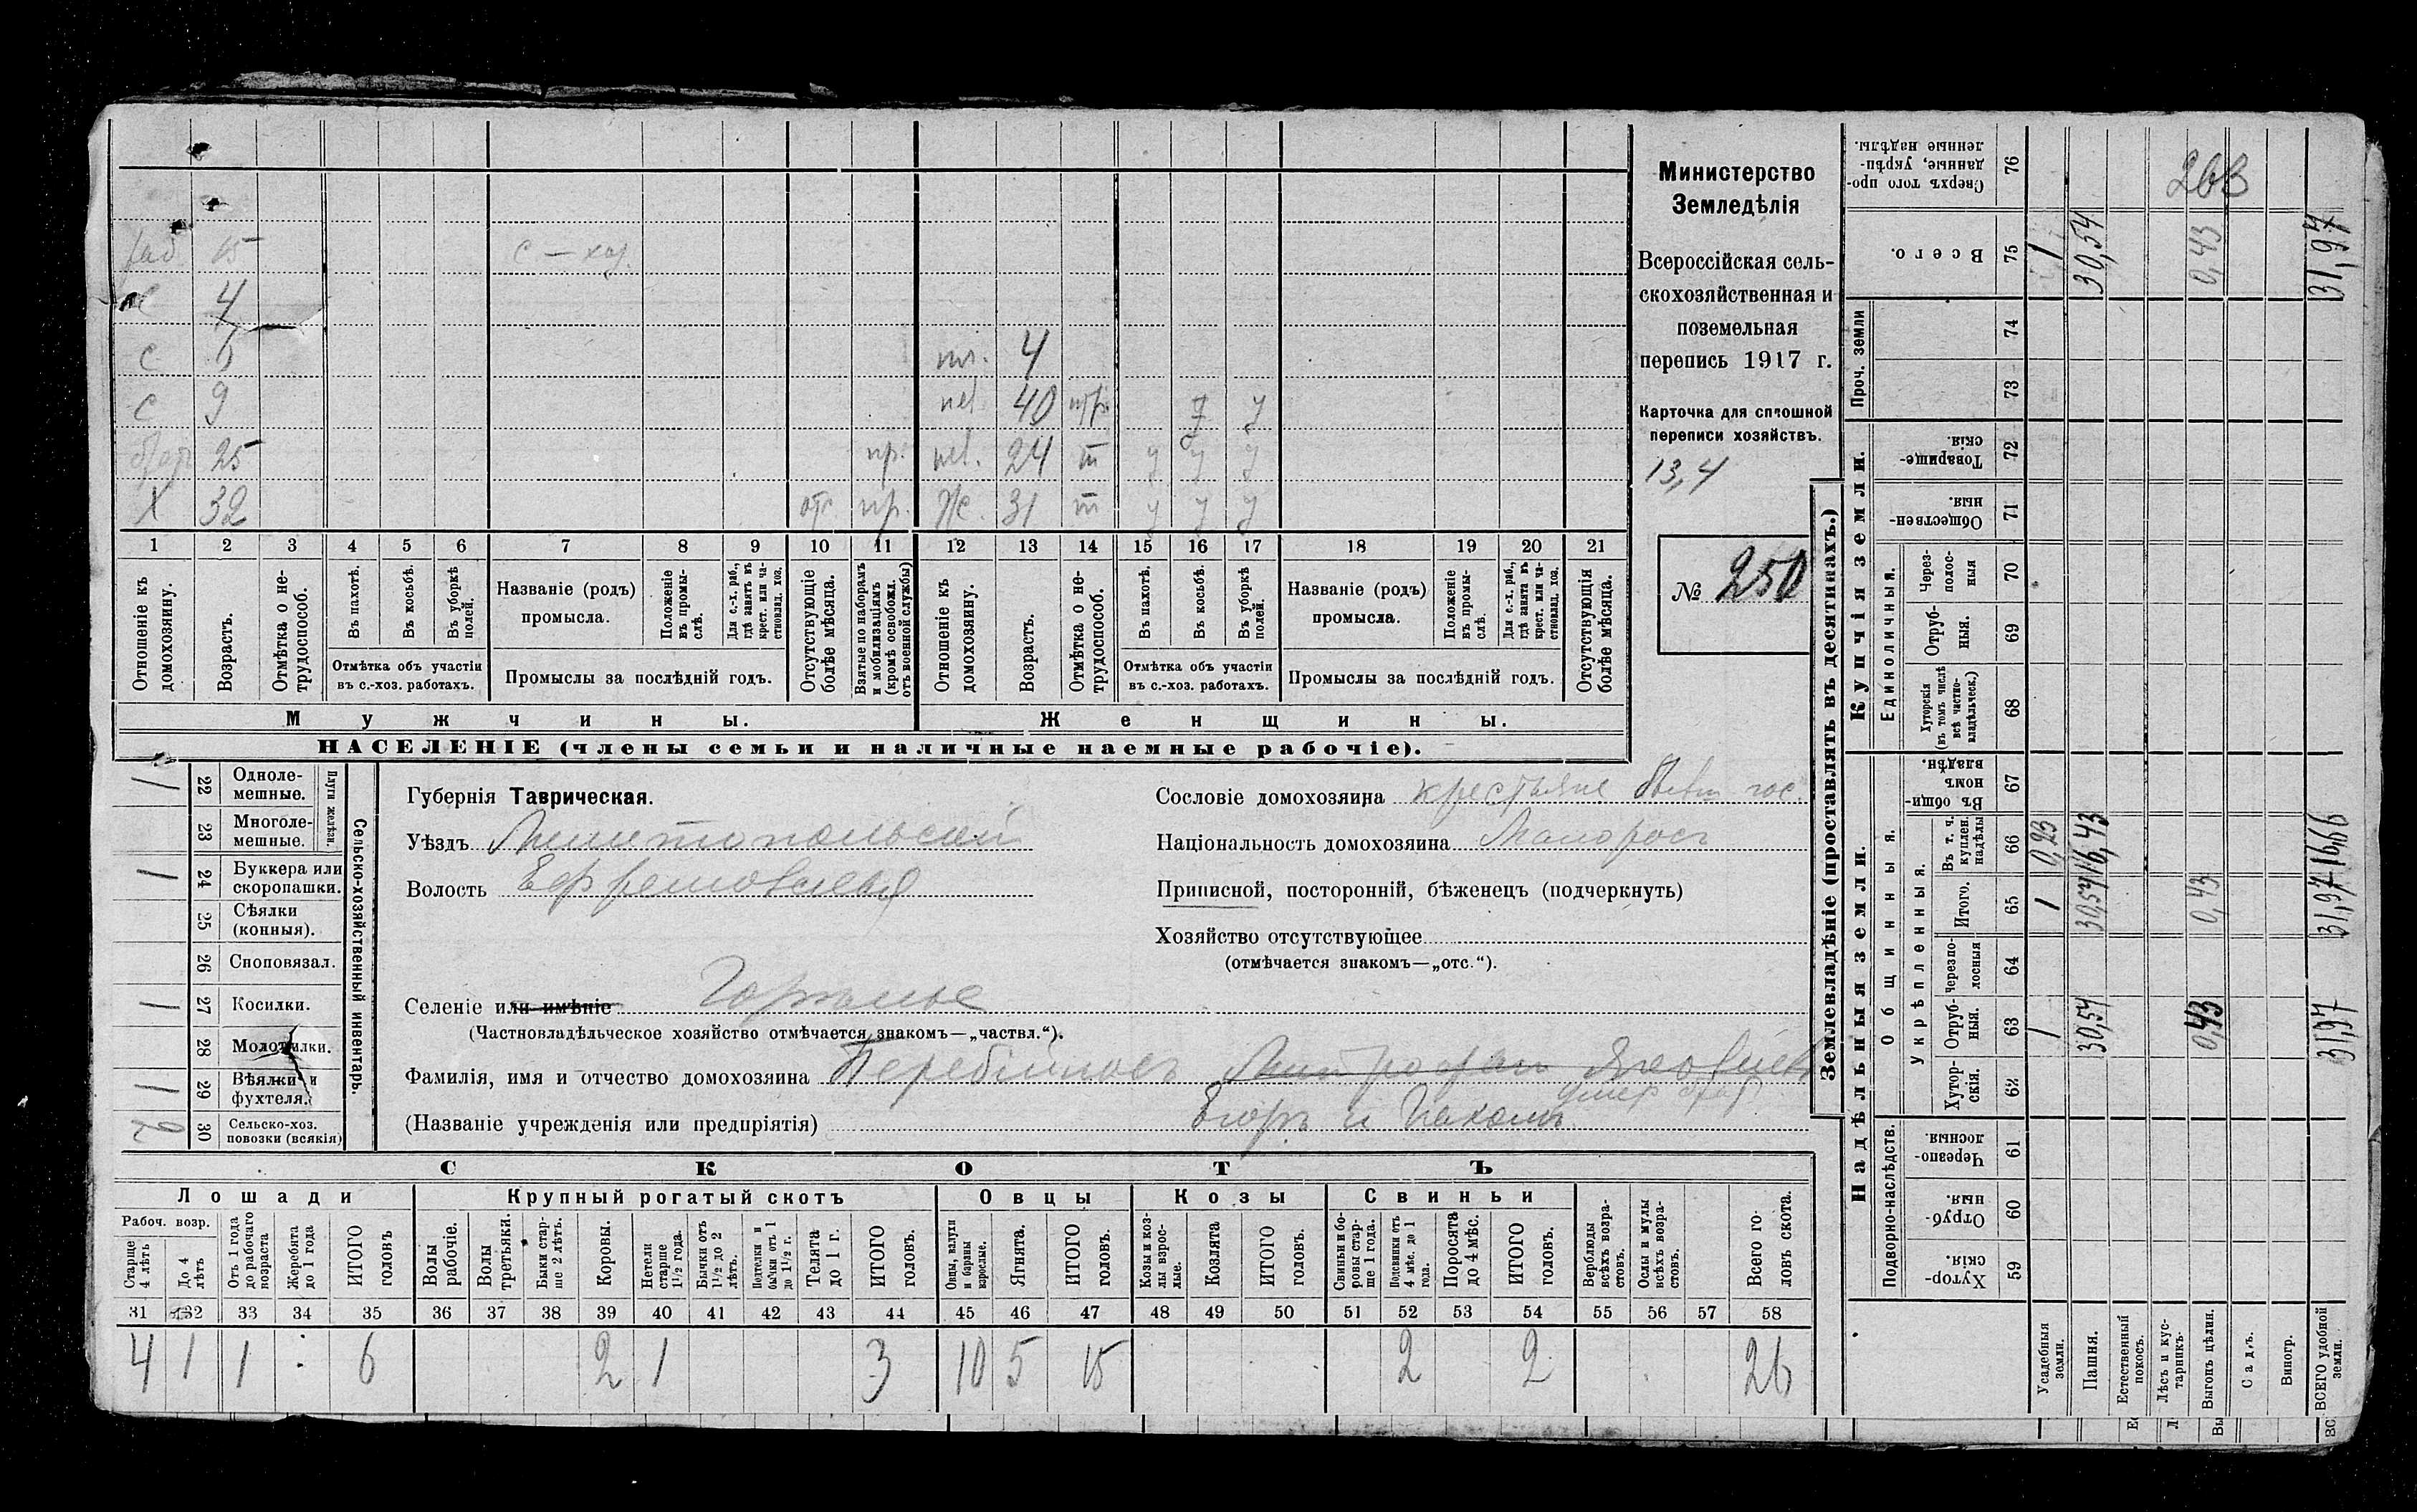 раб. 15 с – хоз.
4
с пл. 4
с 9 нев. 40 у у
брат 25 пр. нев. 24 т у у у
Х 32 отс пр. Ж. 31 т у у у
1 2 3 4 5 6 7 8 9 10 11 12 13 14 15 16 17 18 19 20 21
Отношеніе къ домохозяину.
Возрастъ.
Отмѣтка о не-
трудоспособ.
Въ пахотѣ.
Въ косьбѣ.
Въ уборкѣ полей.
Отмѣтка объ участіи
въ с.-хоз. работахъ.
Названіе (родъ)
промысла.
Положеніе въ промы-
слѣ.
Для с.-х. раб., гдѣ занятъ въ крест. или ча-
стновлад. хоз.
Промыслы за послѣдній годъ.
Отсутствующіе болѣе мѣсяца.
Взятые по наборамъ и мобилизаціямъ (кромѣ освобожд. отъ военной службы)
Отношеніе къ домохозяину.
Возрастъ.
Отмѣтка о не-
трудоспособ.
Въ пахотѣ.
Въ косьбѣ.
Въ уборкѣ полей.
Отмѣтка объ участіи
въ с.-хоз. работахъ.
Названіе (родъ)
промысла.
Положеніе въ промы-
слѣ.
Для с.-х. раб., гдѣ занята въ крест. или ча-
стновлад. хоз.
Промыслы за послѣдній годъ.
Отсутствующія болѣе мѣсяца.
Мужчины. Женщины.
НАСЕЛЕНІЕ (члены семьи и наличные наемные рабочіе).
Министерство
Земледѣлія
Всероссійская сель-
скохозяйственная и
поземельная
перепись 1917 г.
Карточка для сплошной
переписи хозяйствъ.
13,4
№ 250
Сельско-хозяйственный инвентарь.
Плуги желѣзн.
1 22 Одноле-
мешные.
23 Многоле-
мешные.
1 24 Буккера или
скоропашки.
25 Сѣялки
(конныя).
26 Сноповязал.
1 27 Косилки.
28 Молотилки.
1 29 Вѣялки и
фухтеля.
2 30 Сельско-хоз.
повозки (всякія)
Губернія Таврическая.
Уѣздъ Мелитопольскій
Волость Ефремовская
Селеніе или имѣніе Горѣлое
(Частновладѣльческое хозяйство отмѣчается знакомъ—„частвл.“).
Фамилія, имя и отчество домохозяина Перебійносъ Митрофан Яковлев
умер
(Названіе учрежденія или предпріятія) Егоръ и Пахомъ
Сословіе домохозяина крестьяне бывш гос.
Національность домохозяина Малоросъ
Приписной, посторонній, бѣженецъ (подчеркнуть)
Хозяйство отсутствующее
(отмѣчается знакомъ—„отс.“).
СКОТЪ
Лошади Крупный рогатый скотъ Овцы Козы Свиньи
Рабоч. возр.
Старше 4 лѣтъ
До 4 лѣтъ
Отъ 1 года до рабочаго возраста
Жеребята до 1 года
ИТОГО головъ
Волы рабочіе.
Волы третьяки.
Быки стар-
ше 2 лѣтъ.
Коровы.
Нетели старше 1½ года.
Бычки отъ 1½ до 2 лѣтъ.
Подтелки и бычки отъ 1 до 1½ г.
Телята до 1 г.
ИТОГО головъ.
Овцы, валухи и бараны взрослые.
Ягнята.
ИТОГО головъ.
Козы и коз-
лы взрос-
лые.
Козлята
ИТОГО головъ.
Свиньи и бо-
ровы стар-
ше 1 года.
Подсвинки отъ 4 мѣс. до 1 года.
Поросята до 4 мѣс.
ИТОГО головъ.
Верблюды всѣхъ возра-
стовъ.
Ослы и мулы всѣхъ возра-
стовъ.
Всего го-
ловъ скота.
31 32 33 34 35 36 37 38 39 40 41 42 43 44 45 46 47 48 49 50 51 52 53 54 55 56 57 58
4 1 1 6 2 1 3 10 5 15 2 2 26
Землевладѣніе (проставлять въ десятинахъ.)
Надѣльныя земли. Купчія земли. Проч. земли
Подворно-наслѣдств. Общинныя. Единоличныя.
Укрѣпленныя.
Хутор-
скія. 59
Отруб-
ныя. 60
Черезпо-
лосныя. 61
Хутор-
скія. 62
Отруб-
ныя. 63 1 30,54 0,43 31,97
Черезпо-
лосныя 64
Итого. 65 1 30,54 0,43 31,97
Въ т. ч. куплен. надѣлы 66 0,23 16,43 16,66
Въ общи-
номъ владѣн. 67
Хуторскія (въ томъ числѣ всѣ частно-
владѣльческ.) 68
Отруб-
ныя. 69
Через-
полос-
ныя 70
Обществен-
ныя. 71
Товарище-
скія. 72
73
74
Всего. 75 1 30,54 0,43 31,97
Сверхъ того про-
данные, укрѣп-
ленные надѣлы. 76
263
Усадебныя земли.
Пашня.
Естественный покосъ.
Лѣсъ и кус-
тарникъ.
Выгонъ цѣлин.
Садъ.
Виногр.
ВСЕГО удобной земли.